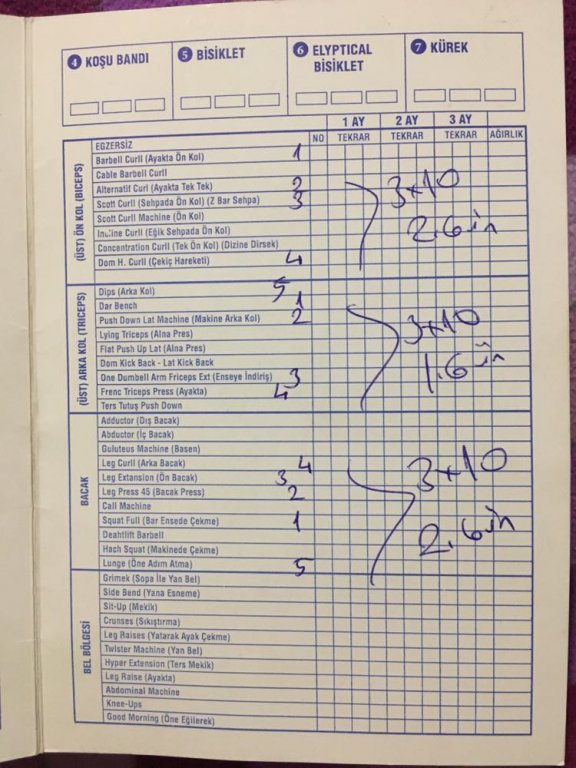 4 KOŞU BANDI
5 BİSİKLET
6 ELYPTICAL BİSİKLET
7 KÜREK
1 AY 2 AY 3 AY
EGZERSİZ NO TEKRAR TEKRAR TEKRAR AĞIRLIK
(ÜST) ÖN KOL (BICEPS)
Barbell Curll (Ayakta Ön Kol) 1
Cable Barbell Curll
Alternatif Curll (Ayakta Tek Tek) 2 3x10
Scott Curll (Sehpada Ön Kol) (Z Bar Sehpa) 3
Scott Curll Machine (Ön Kol) 2.Gün
Incline Curll (Eğik Sehpada Ön Kol)
Concentration Curll (Tek Ön Kol) (Dizine Dirsek)
Dom H. Curll (Çekiç Hareketi) 4
(ÜST) ARKA KOL (TRICEPS)
Dips (Arka Kol) 5
Dar Bench 1
Push Down Lat Machine (Makine Arka Kol) 2 3x10
Lying Triceps (Alna Pres)
Flat Push Up Lat (Alna Pres)
Dom Kick Back - Lat Kick Back 1.Gün
One Dumbell Arm Friceps Ext (Enseye İndiriş) 3
Frenc Triceps Press (Ayakta) 4
Ters Tutuş Push Down
BACAK
Adductor (Dış Bacak)
Abductor (İç Bacak)
Guluteus Machine (Basen)
Leg Curll (Arka Bacak) 4 3x10
Leg Extension (Ön Bacak) 3
Leg Press 45 (Bacak Press) 2
Call Machine
Squat Full (Bar Ensede Çekme) 1 2.Gün
Deahtlift Barbell
Hach Squat (Makinede Çekme)
Lunge (Öne Adım Atma) 5
BEL BÖLGESİ
Grimek (Sopa İle Yan Bel)
Side Bend (Yana Esneme)
Sit-Up (Mekik)
Crunses (Sıkıştırma)
Leg Raises (Yatarak Ayak Çekme)
Twister Machine (Yan Bel)
Hyper Extension (Ters Mekik)
Leg Raise (Ayakta)
Abdominal Machine
Knee-Ups
Good Morning (Öne Eğilerek)